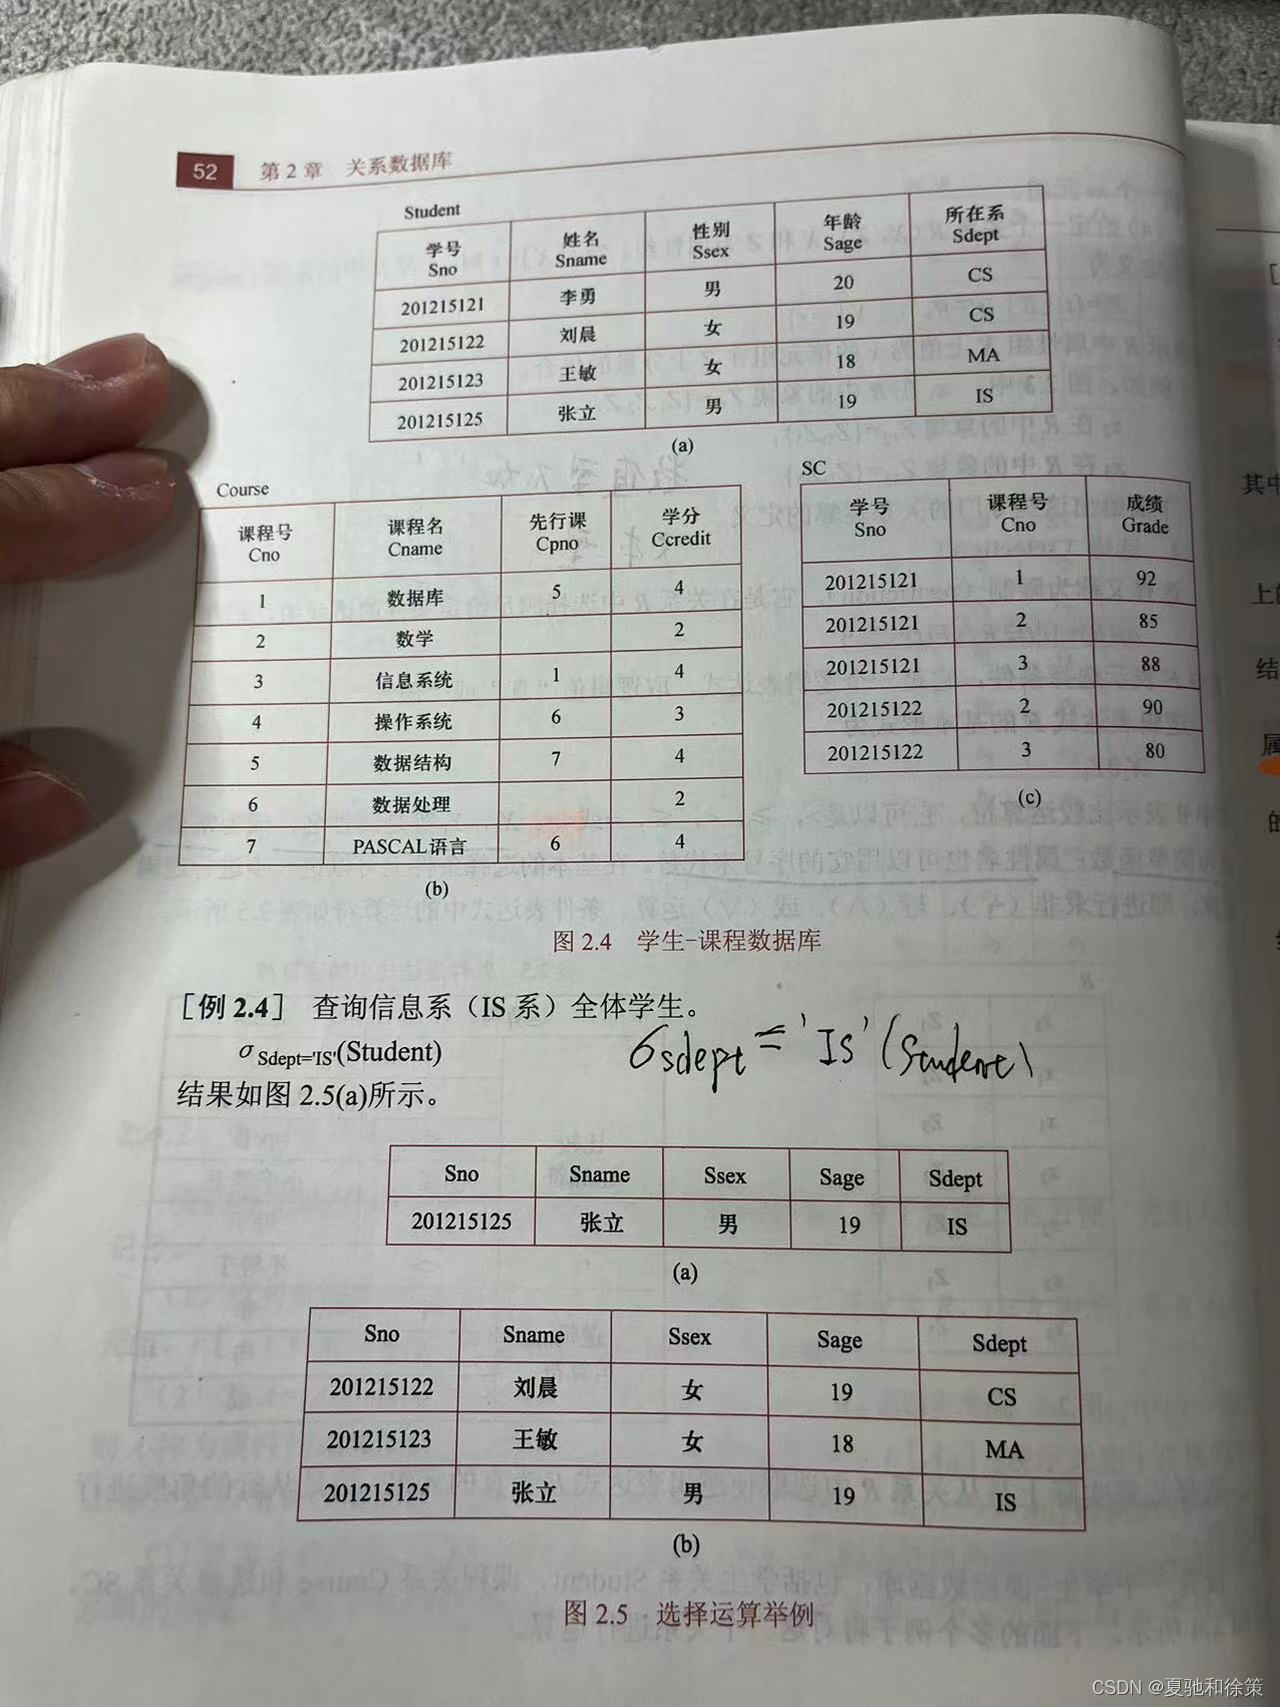 52 第2章 关系数据库
Student
学号 姓名 性别 年龄 所在系
Sno Sname Ssex Sage Sdept
201215121 李勇 男 20 CS
201215122 刘晨 女 19 CS
201215123 王敏 女 18 MA
201215125 张立 男 19 IS
(a)
Course
课程号 课程名 先行课 学分
Cno Cname Cpno Ccredit
1 数据库 5 4
2 数学 2
3 信息系统 1 4
4 操作系统 6 3
5 数据结构 7 4
6 数据处理 2
7 PASCAL语言 6 4
(b)
SC
学号 课程号 成绩
Sno Cno Grade
201215121 1 92
201215121 2 85
201215121 3 88
201215122 2 90
201215122 3 80
(c)
图 2.4 学生-课程数据库
[例 2.4] 查询信息系（IS 系）全体学生。
σSdept='IS'(Student)
σsdept='IS'(Student)
结果如图 2.5(a)所示。
Sno Sname Ssex Sage Sdept
201215125 张立 男 19 IS
(a)
Sno Sname Ssex Sage Sdept
201215122 刘晨 女 19 CS
201215123 王敏 女 18 MA
201215125 张立 男 19 IS
(b)
图 2.5 选择运算举例
其中
上的
结
属
的
CSDN @夏驰和徐策